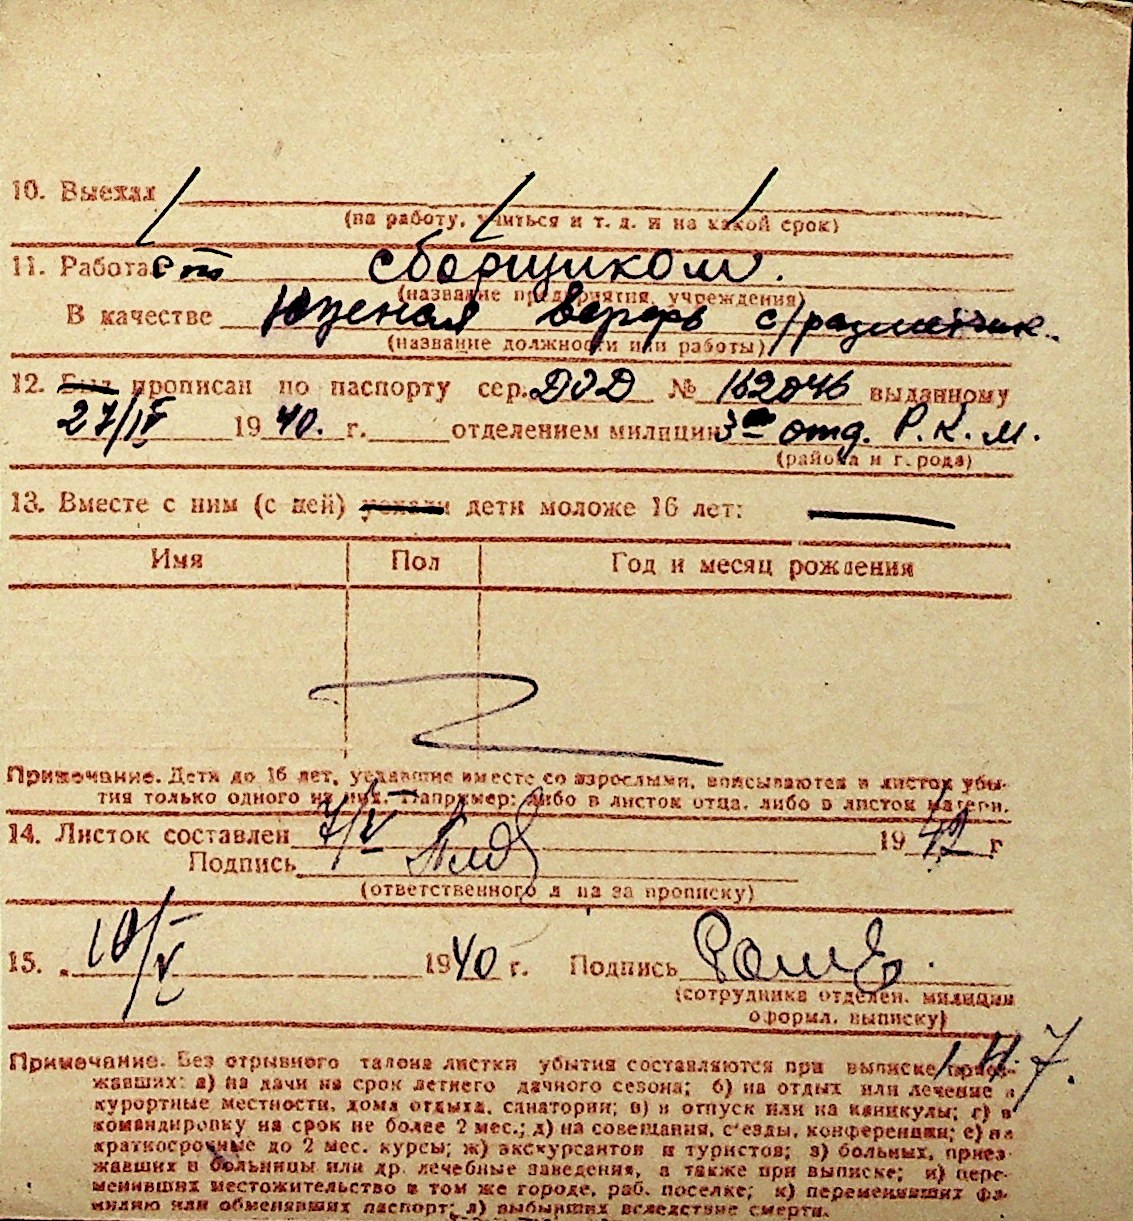 10. Выехал
(на работу, учиться и т. д. и на какой срок)
11. Работал сборщиком.
(название предприятия, учреждения)
В качестве Южная верфь с/разметчик.
(название должности или работы)
12. Был прописан по паспорту сер. № 162046 выданному
27/IV 1940. г. отделением милиции 3 отд. Р. К. М.
(района и города)
13. Вместе с ним (с ней) уехали дети моложе 16 лет: —
Имя Пол Год и месяц рождения
Примечание. Дети до 16 лет, уехавшие вместе со взрослыми, вписываются в листок убы-
тия только одного из них. Например: либо в листок отца, либо в листок матери.
14. Листок составлен 7/V 19 г
Подпись
(ответственного л ца за прописку)
15. 10/V 1940 г. Подпись
(сотрудника отделен. милиции
оформл. выписку)
Примечание. Без отрывного талона листки убытия составляются при выписке приез-
жавших: а) на дачи на срок летнего дачного сезона; б) на отдых или лечение в
курортные местности, дома отдыха, санатории; в) в отпуск или на каникулы; г) в
командировку на срок не более 2 мес.; д) на совещания, съезды, конференции; е) на
краткосрочные до 2 мес. курсы; ж) экскурсантов и туристов; з) больных, приез-
жавших в больницы или др. лечебные заведения, а также при выписке; и) пере-
менивших местожительство в том же городе, раб. поселке; к) переменивших фа-
милию или обменявших паспорт; л) выбывших вследствие смерти.